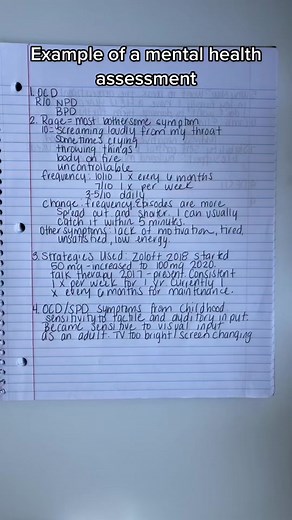 Example of a mental health
assessment
1. OCD
R/O NPD
BPD
2. Rage = most bothersome symptom
10 = screaming loudly from my throat
sometimes crying
throwing things
body on fire
uncontrollable
frequency: 10/10 1 x every 6 months
7/10 1 x per week
3-5/10 daily
change: frequency, Episodes are more
spread out and shorter. I can usually
catch it within 5 minutes.
Other symptoms: lack of motivation, tired,
unsatisfied, low energy.
3. Strategies Used: Zoloft 2018 started
50 mg - increased to 100mg 2020.
talk therapy 2017 - present. Consistent
1 x per week for 1 yr. Currently 1
x every 6 months for maintenance.
4. OCD/SPD symptoms from childhood
sensitivity to tactile and auditory input.
Became sensitive to visual input
as an adult. TV too bright/screen changing